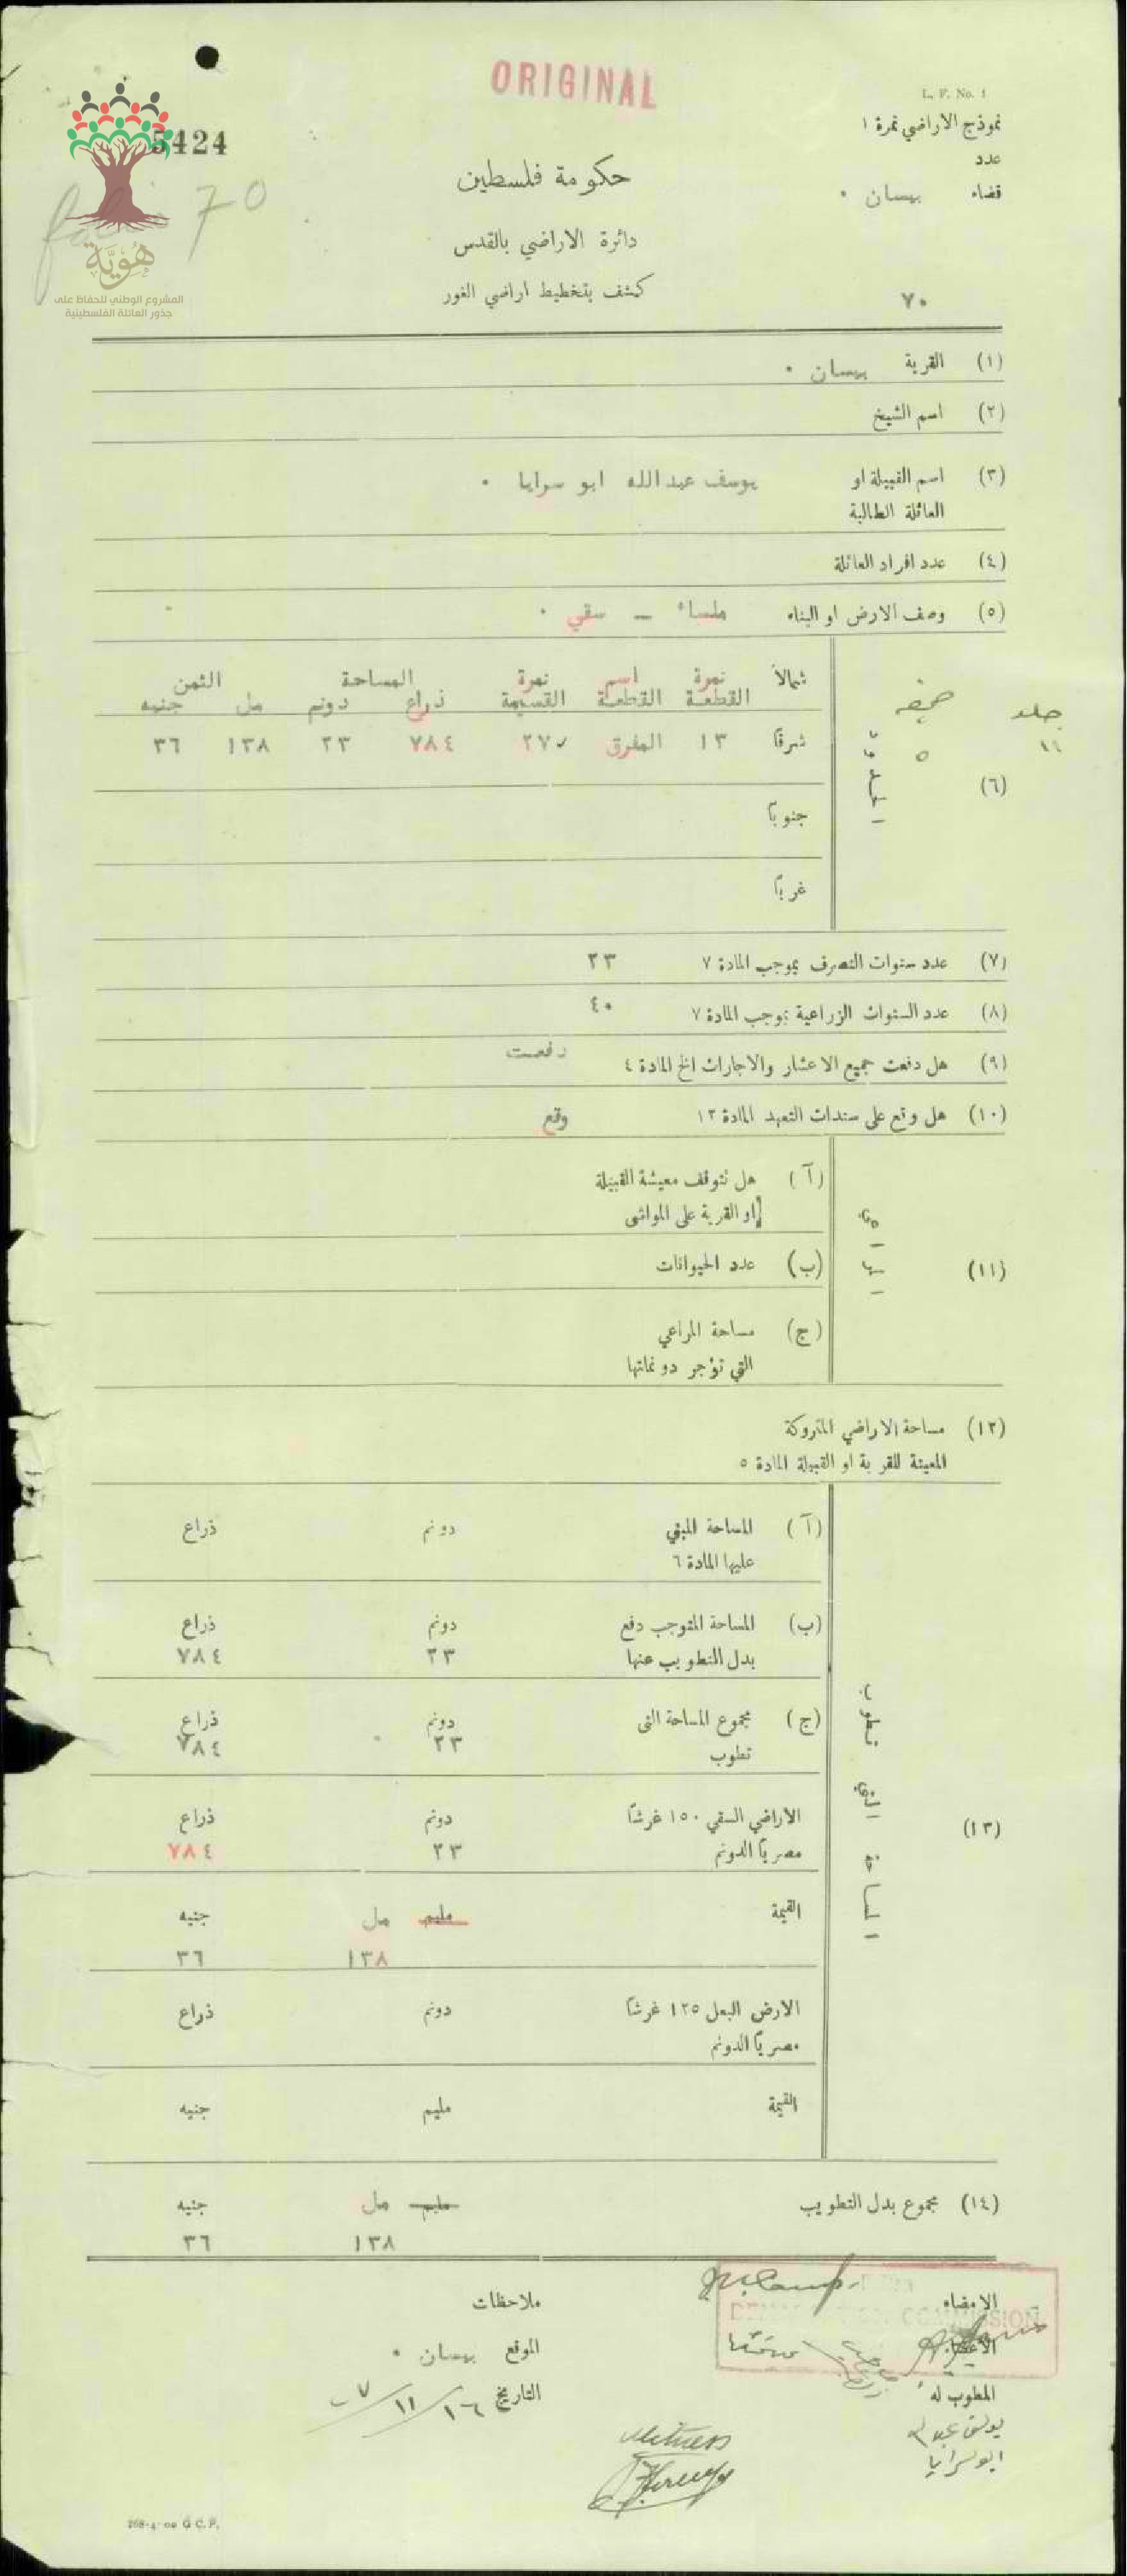 ORIGINAL
L. F. No. 1
نموذج الاراضي نمرة ١
5424
عدد
حكومة فلسطين
قضاء بيسان ٠
70
دائرة الاراضي بالقدس
هُوِيَّة
المشروع الوطني للحفاظ على
جذور العائلة الفلسطينية
كشف بتخطيط اراضي الغور
٧٠
(١) القرية بيسان ٠
(٢) اسم الشيخ
(٣) اسم القبيلة او العائلة الطالبة يوسف عبدالله ابو سرايا ٠
(٤) عدد افراد العائلة
(٥) وصف الارض او البناء ملساء — سقي ٠
جلد صحيفه
١٤ ٥
(٦) الحدود
شمالاً نمرة القطعة اسم القطعة نمرة القسيمة المساحة ذراع دونم الثمن مل جنيه
شرقاً ١٣ المفرق ٢٧ ٧٨٤ ٢٣ ١٣٨ ٣٦
جنوباً
غرباً
(٧) عدد سنوات التصرف بموجب المادة ٧ ٢٣
(٨) عدد السنوات الزراعية بموجب المادة ٧ ٤٠
(٩) هل دفعت جميع الاعشار والاجارات الخ المادة ٤ دفعت
(١٠) هل وقع على سندات التعهد المادة ١٣ وقع
(١١)
(آ) هل تتوقف معيشة القبيلة
او القرية على المواشى
(ب) عدد الحيوانات
(ج) مساحة المراعي
التي تؤجر دونماتها
(١٢) مساحة الاراضي المتروكة
المعينة للقرية او القبيلة المادة ٥
(١٣) المساحة التي تطوب
(آ) المساحة المبني دونم ذراع
عليها المادة ٦
(ب) المساحة المتوجب دفع دونم ذراع
بدل التطويب عنها ٢٣ ٧٨٤
(ج) مجموع المساحة التى دونم ذراع
تطوب ٢٣ ٧٨٤
الاراضي السقي ١٥٠ غرشاً دونم ذراع
مصرياً الدونم ٢٣ ٧٨٤
القيمة مليم مل جنيه
١٣٨ ٣٦
الارض البعل ١٢٥ غرشاً دونم ذراع
مصرياً الدونم
القيمة مليم جنيه
(١٤) مجموع بدل التطويب مليم مل جنيه
١٣٨ ٣٦
الامضاء ملاحظات
COMMISSION
الاعضاء الموقع بيسان ٠
المطوب له التاريخ ١٦/١١/
يوسف عبدالله
ابو سرايا
Witness
G.C.P.